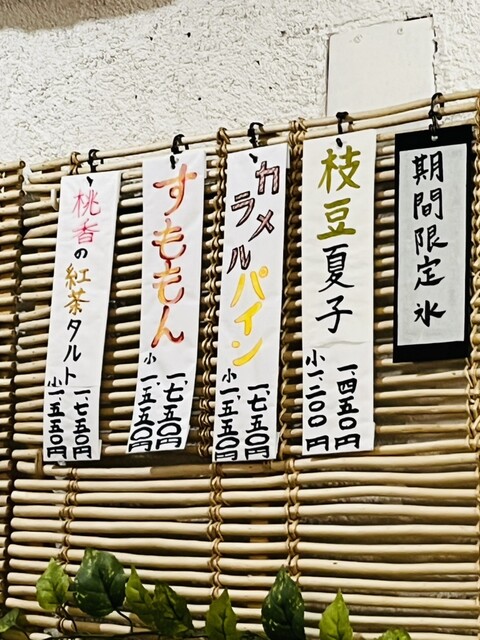 期間限定氷
枝豆夏子
一、四五〇円
小一、二〇〇円
カラメルパイン
一、七五〇円
小一、五五〇円
すももん
一、七五〇円
小一、五五〇円
桃香の紅茶タルト
一、七五〇円
小一、五五〇円